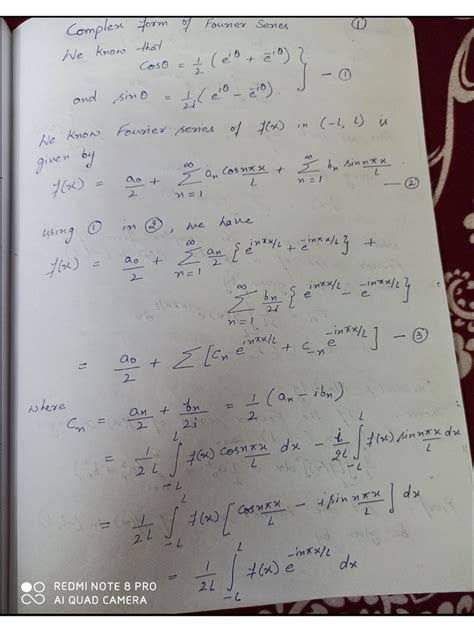 Complex Form of Fourier Series ①
We know that
cosθ = 1/2 (e^{iθ} + e^{-iθ})
and sinθ = 1/2i (e^{iθ} - e^{-iθ}) } — ①
We know Fourier series of f(x) in (-L, L) is
given by
f(x) = a₀/2 + ∑_{n=1}^{∞} aₙ cos nπx/L + ∑_{n=1}^{∞} bₙ sin nπx/L — ②
using ① in ②, we have
f(x) = a₀/2 + ∑_{n=1}^{∞} aₙ/2 {e^{inπx/L} + e^{-inπx/L}} +
∑_{n=1}^{∞} bₙ/2i {e^{inπx/L} - e^{-inπx/L}}
= a₀/2 + ∑ [Cₙ e^{inπx/L} + C₋ₙ e^{-inπx/L}] — ③
where
Cₙ = aₙ/2 + bₙ/2i = 1/2 (aₙ - ibₙ)
= 1/2L ∫_{-L}^{L} f(x) cos nπx/L dx - i/2L ∫_{-L}^{L} f(x) sin nπx/L dx
= 1/2L ∫_{-L}^{L} f(x) [cos nπx/L - i sin nπx/L] dx
= 1/2L ∫_{-L}^{L} f(x) e^{-inπx/L} dx
REDMI NOTE 8 PRO
AI QUAD CAMERA